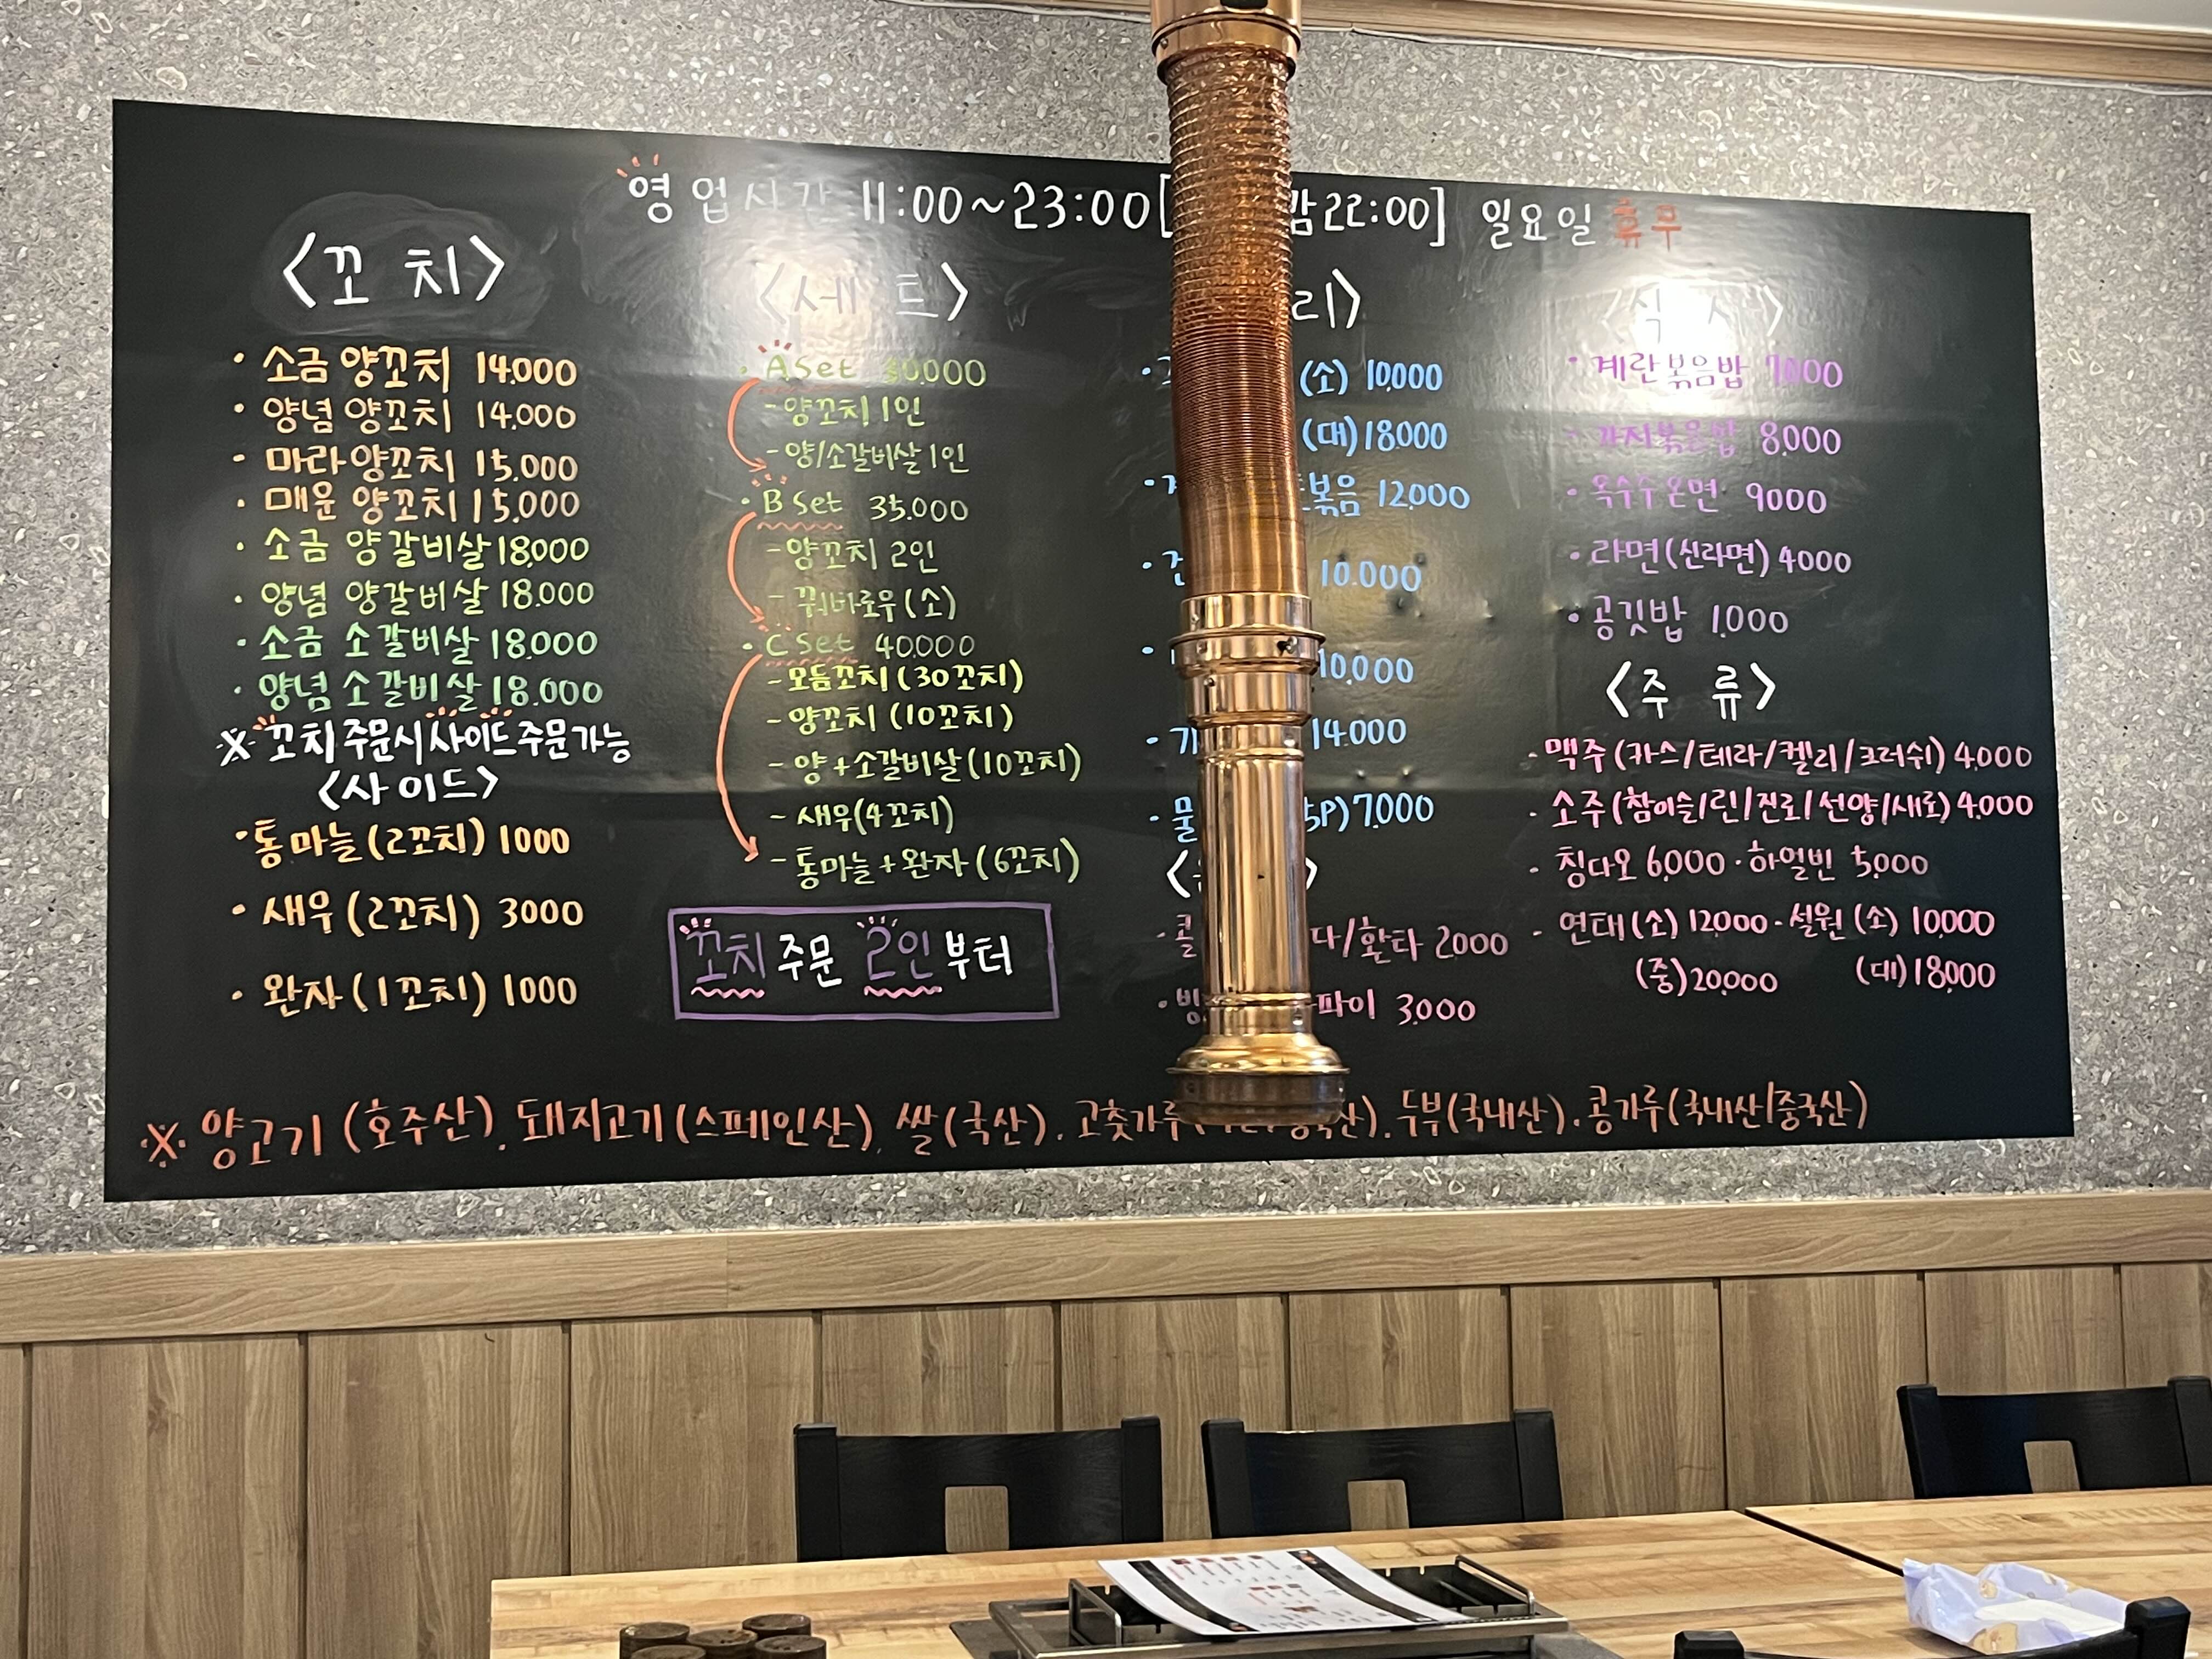 영업시간 11:00~23:00[ 22:00] 일요일 휴무
<꼬치>
· 소금 양꼬치 14.000
· 양념 양꼬치 14.000
- 마라양꼬치 15.000
· 매운 양꼬치 15.000
· 소금 양갈비살 18.000
· 양념 양갈비살 18.000
· 소금 소갈비살 18.000
· 양념 소갈비살 18.000
※ 꼬치주문시 사이드 주문가능
<사이드>
· 통마늘(2꼬치) 1000
· 새우(2꼬치) 3000
· 완자(1꼬치) 1000
<세트>
· A Set 30.000
- 양꼬치 1인
- 양/소갈비살 1인
· B Set 35.000
- 양꼬치 2인
- 꿔바로우(소)
· C Set 40.000
- 모듬꼬치(30꼬치)
- 양꼬치(10꼬치)
- 양+소갈비살(10꼬치)
- 새우(4꼬치)
- 통마늘+완자(6꼬치)
꼬치 주문 2인부터
리>
(소) 10.000
(대) 18.000
볶음 12.000
10.000
10.000
14.000
물 5P) 7.000
다/환타 2000
파이 3.000
<식사>
· 계란볶음밥 7000
- 가지볶음밥 8.000
· 옥수수온면 9000
· 라면(신라면) 4000
· 공깃밥 1.000
<주류>
- 맥주(카스/테라/켈리/크러쉬) 4.000
· 소주(참이슬/린/진로/선양/새로) 4.000
- 칭다오 6.000 · 하얼빈 5.000
- 연태(소) 12.000 - 설원(소) 10.000
(중)20.000 (대)18.000
※ 양고기(호주산), 돼지고기(스페인산), 쌀(국산). 고춧가루 산). 두부(국내산). 콩가루(국내산/중국산)